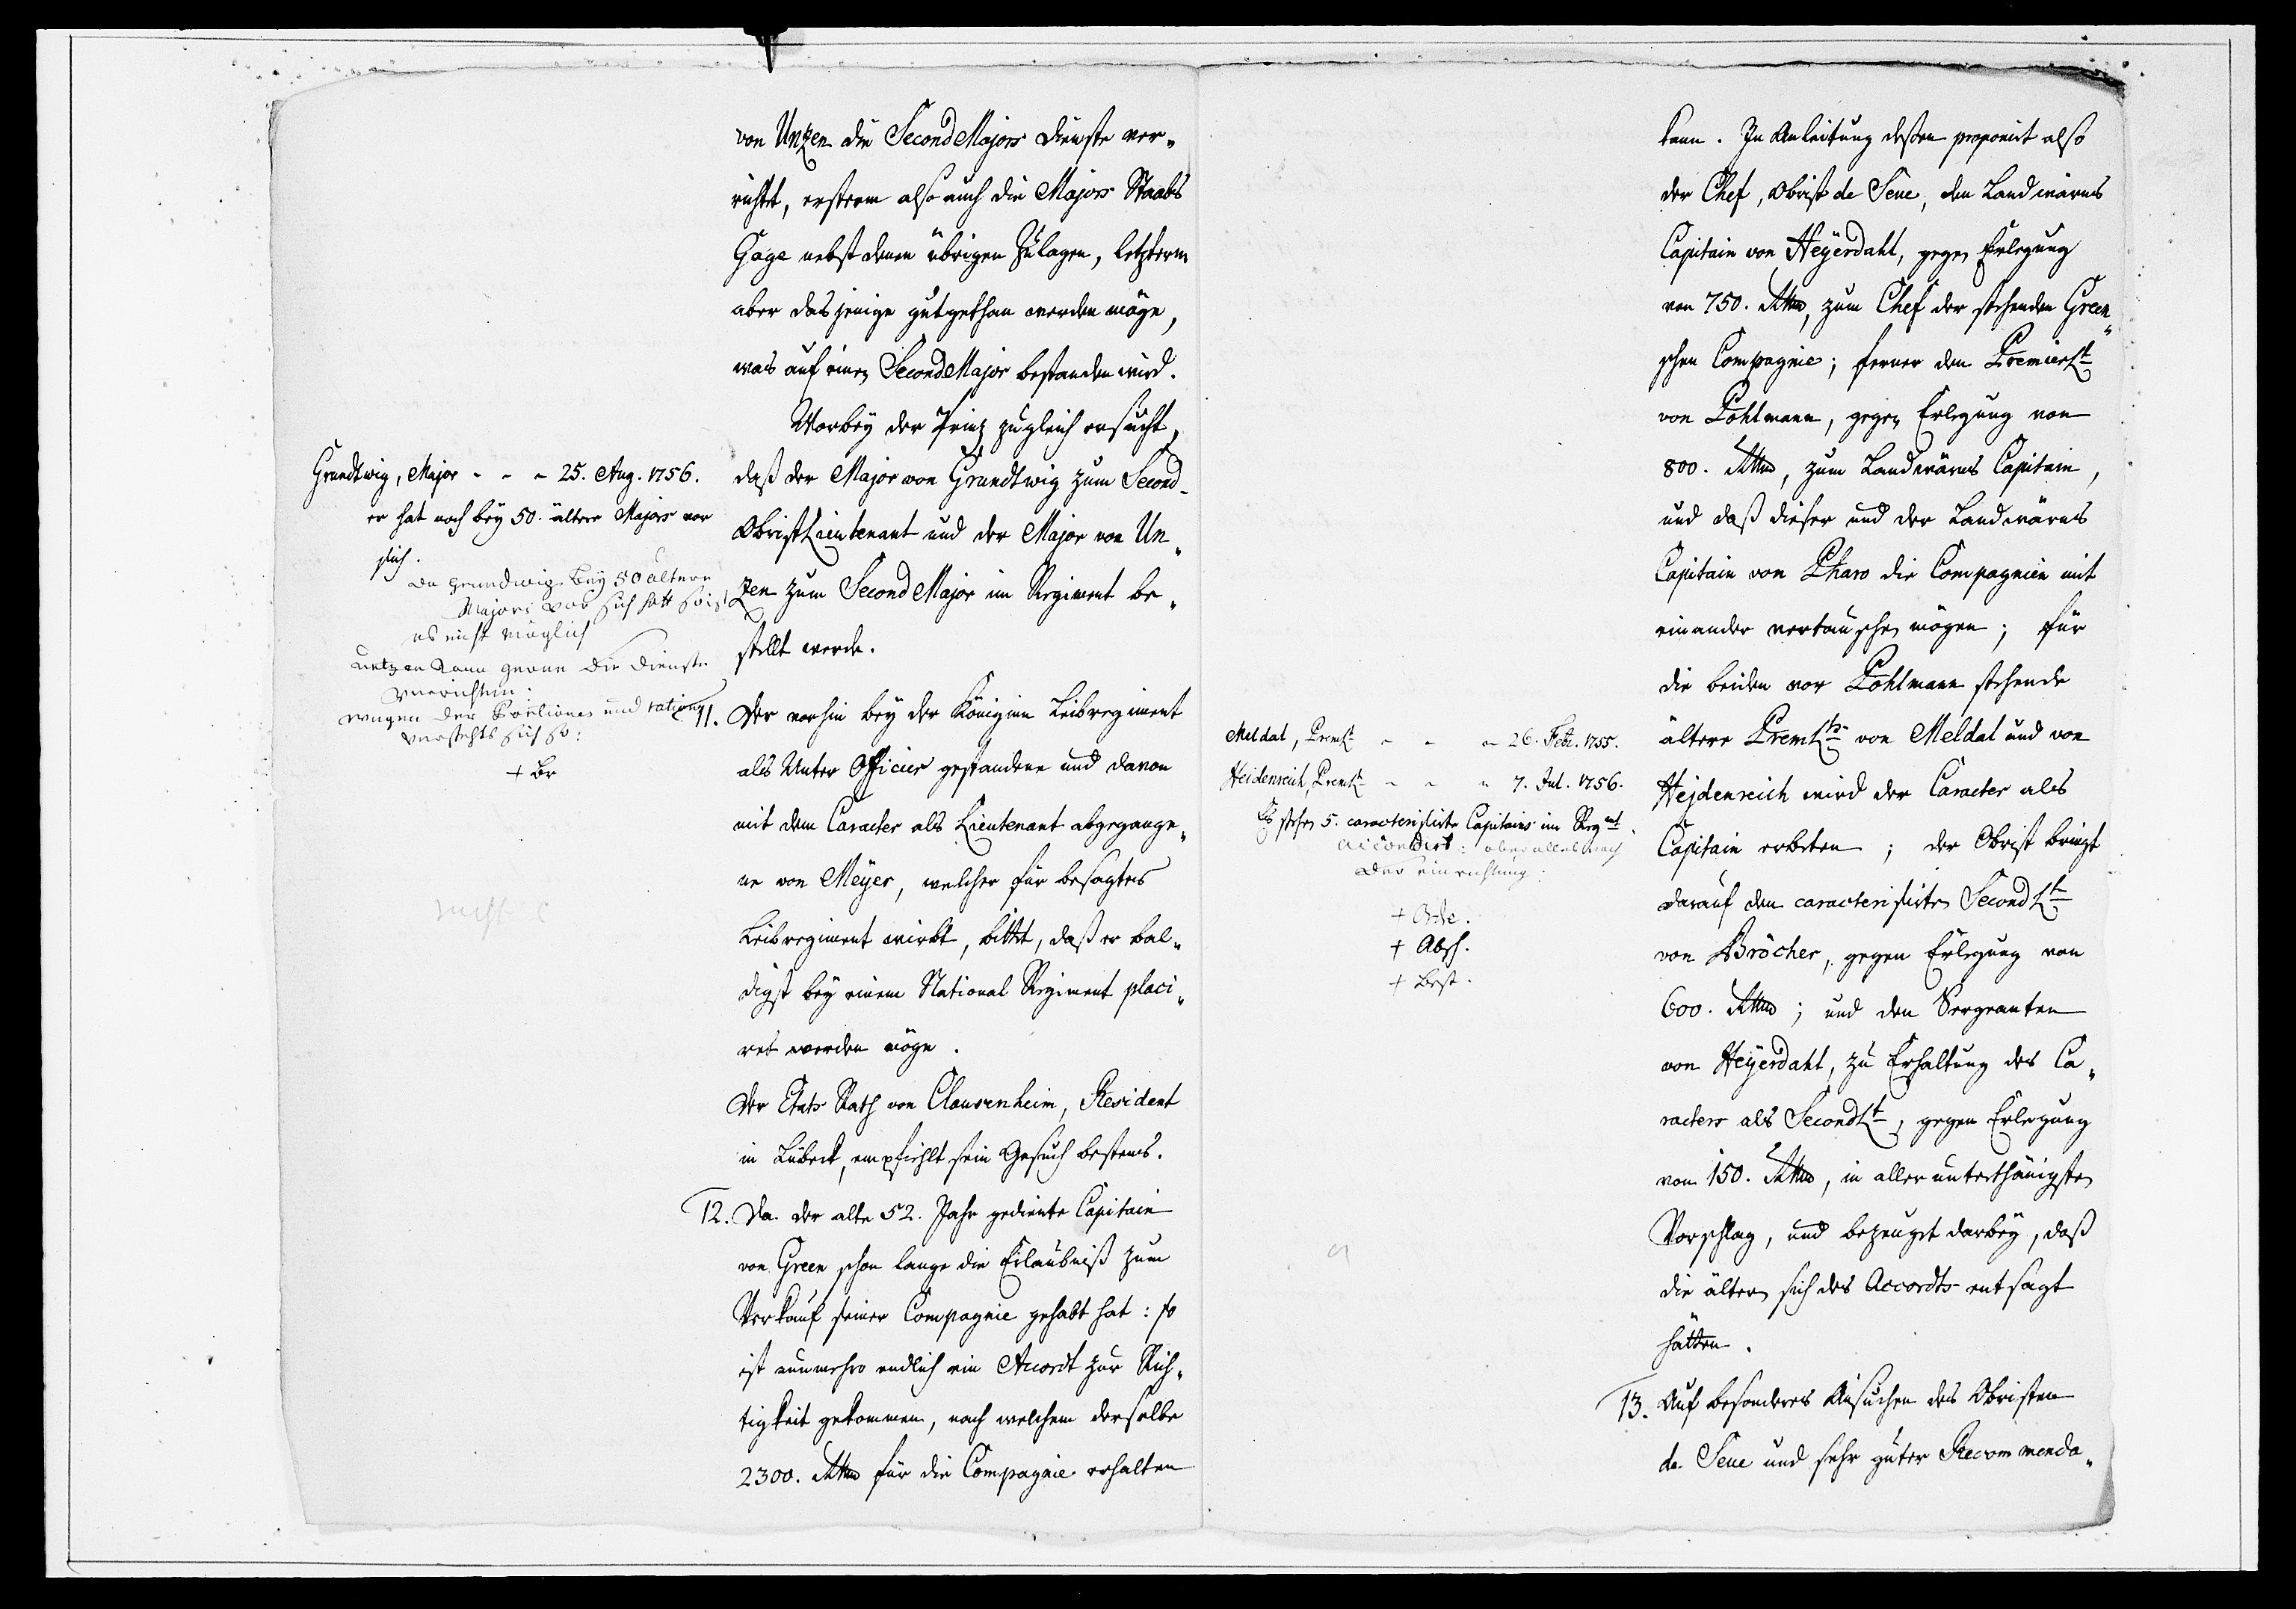 von Unzen die SecondMajors Dienste ver„
richtet, ersterm also auch die Majors Staabs
Gage nebst denen übrigen Zulagen, letzterm
aber dasjenige gutgethan werden möge,
was auf einen SecondMajor bestanden wird.
Worbey der Prinz zugleich ersucht,
daß der Major von Grundtwig zum Second-
ObristLieutenant und der Major von Un„
zen zum SecondMajor im Regiment be„
stellt werde.
Grundtwig, Major - - - 25. Aug. 1756.
er hat noch bey 50. ältere Majors vor
sich.
Da Grundwig bey 50 altere
Majors vor sich hatt so ist
es nicht möglich
Untzen kann gerne die Dienste
verrichten:
wegen der Portionen und rations
verstehts sich so:
+ Br
11. Der vorhin bey der Königin Leibregiment
als Unter Officier gestandene und davon
mit dem Caracter als Lieutenant abgegange„
ne von Meyer, welcher für besagtes
Leibregiment wirbt, bittet, daß er bal„
digst bey einem National Regiment placi„
ret werden möge.
Der Etats Rath von Clausenheim, Resident
in Lübeck, empfiehlt sein Gesuch bestens.
nicht
12. Da der alte 52. Jahr gediente Capitain
von Green schon lange die Erlaubniß zum
Verkauf seiner Compagnie gehabt hat: so
ist nunmehro endlich ein Accordt zur Rich„
tigkeit gekommen, nach welchem derselbe
2300. Rthlr für die Compagnie erhalten
kann. In Anleitung deßen proponirt also
der Chef, Obrist de Seue, den Landwärns
Capitain von Heyerdahl, gegen Erlegung
von 750. Rthlr, zum Chef der stehenden Green„
schen Compagnie; ferner den PremierLt
von Pohlmann, gegen Erlegung von
800. Rthlr, zum Landwärns Capitain,
und daß dieser und der Landwärns
Capitain von Pharo die Compagnien mit
einander vertauschen mögen; für
die beiden vor Pohlmann stehende
ältere PremLts von Meldal und von
Hejdenreich wird der Caracter als
Capitain erbeten; der Obrist bringt
darauf den caracterisirten SecondLt
von Bröcher, gegen Erlegung von
600. Rthlr; und den Sergeanten
von Heyerdahl, zu Erhaltung des Ca„
racters als SecondLt, gegen Erlegung
von 150. Rthlr, in allerunterthänigsten
Vorschlag, und bezeuget darbey, daß
die ältern sich des Accordts entsagt
hätten.
Meldal, PremLt - - - 26. Febr. 1755.
Heidenreich, PremLt - - - 7. Jul. 1756.
Es stehen 5. caracterisirte Capitains im Regmt
accordirt: aber alles nach
der einrichtung:
+ Abs.
+ Best.
13. Auf besonderes Ansuchen des Obristen
de Seue und sehr guter Recommenda„